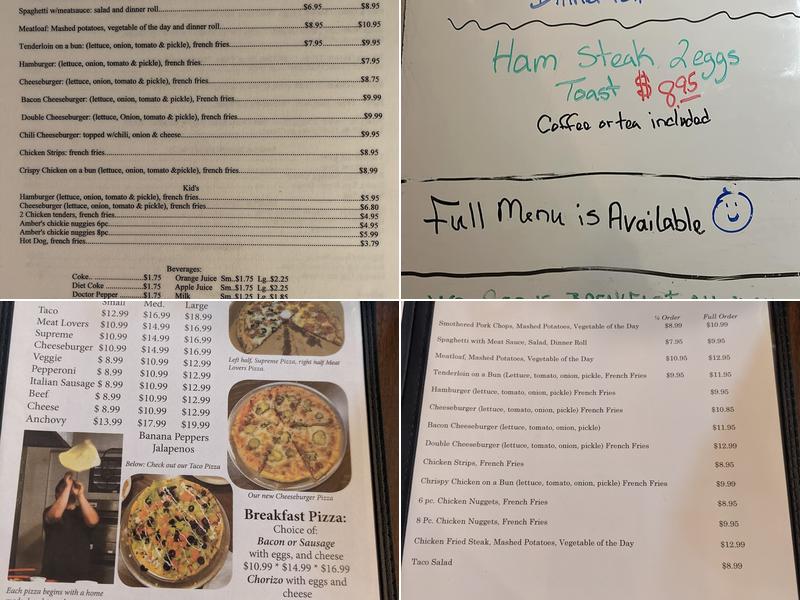 Spaghetti w/meatsauce: salad and dinner roll $6.95 $8.95
Meatloaf: Mashed potatoes, vegetable of the day and dinner roll $8.95 $10.95
Tenderloin on a bun: (lettuce, onion, tomato & pickle), french fries $7.95 $9.95
Hamburger: (lettuce, onion, tomato & pickle), french fries $7.95
Cheeseburger: (lettuce, onion, tomato & pickle), french fries $8.75
Bacon Cheeseburger: (lettuce, onion, tomato & pickle), French fries $9.99
Double Cheeseburger: (lettuce, Onion, tomato & pickle), french fries $9.99
Chili Cheeseburger: topped w/chili, onion & cheese $9.95
Chicken Strips: french fries $8.95
Crispy Chicken on a bun (lettuce, onion, tomato &pickle), french fries $8.99
Kid's
Hamburger (lettuce, onion, tomato & pickle), french fries $5.95
Cheeseburger (lettuce, onion, tomato & pickle), french fries $6.80
2 Chicken tenders, french fries $4.95
Amber's chickie nuggies 6pc $4.95
Amber's chickie nuggies 8pc $5.99
Hot Dog, french fries $3.79
Beverages:
Coke.. $1.75 Orange Juice Sm..$1.75 Lg..$2.25
Diet Coke $1.75 Apple Juice Sm..$1.75 Lg..$2.25
Doctor Pepper $1.75 Milk Sm..$1.25 Lg..$1.85
Ham Steak 2eggs
Toast $8.95
Coffee or tea included
Full Menu is Available
Small Med. Large
Taco $12.99 $16.99 $18.99
Meat Lovers $10.99 $14.99 $16.99
Supreme $10.99 $14.99 $16.99
Cheeseburger $10.99 $14.99 $16.99
Veggie $ 8.99 $10.99 $12.99
Pepperoni $ 8.99 $10.99 $12.99
Italian Sausage $ 8.99 $10.99 $12.99
Beef $ 8.99 $10.99 $12.99
Cheese $ 8.99 $10.99 $12.99
Anchovy $13.99 $17.99 $19.99
Banana Peppers
Jalapenos
Below: Check out our Taco Pizza
Left half, Supreme Pizza, right half Meat
Lovers Pizza.
Our new Cheeseburger Pizza
Breakfast Pizza:
Choice of:
Bacon or Sausage
with eggs, and cheese
$10.99 * $14.99 * $16.99
Chorizo with eggs and
cheese
Each pizza begins with a home
½ Order Full Order
Smothered Pork Chops, Mashed Potatoes, Vegetable of the Day $8.99 $10.99
Spaghetti with Meat Sauce, Salad, Dinner Roll $7.95 $9.95
Meatloaf, Mashed Potatoes, Vegetable of the Day $10.95 $12.95
Tenderloin on a Bun (Lettuce, tomato, onion, pickle, French Fries $9.95 $11.95
Hamburger (lettuce, tomato, onion, pickle) French Fries $9.95
Cheeseburger (lettuce, tomato, onion, pickle) French Fries $10.85
Bacon Cheeseburger (lettuce, tomato, onion, pickle) $11.95
Double Cheeseburger (lettuce, tomato, onion, pickle) French Fries $12.99
Chicken Strips, French Fries $8.95
Chrispy Chicken on a Bun (lettuce, tomato, onion, pickle) French Fries $9.99
6 pc. Chicken Nuggets, French Fries $8.95
8 Pc. Chicken Nuggets, French Fries $9.95
Chicken Fried Steak, Mashed Potatoes, Vegetable of the Day $12.99
Taco Salad $8.99